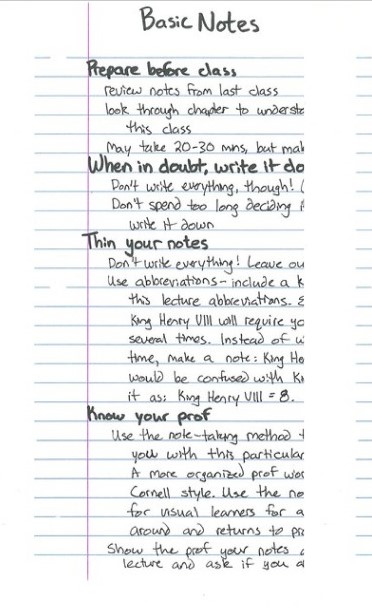 Basic Notes
Prepare before class
review notes from last class
look through chapter to understa
this class
May take 20-30 mins, but mak
When in doubt, write it do
Don't write everything, though! (
Don't spend too long deciding i
write it down
Thin your notes
Don't write everything! Leave ou
Use abbreviations - include a k
this lecture abbreviations. E
King Henry VIII will require yo
several times. Instead of w
time, make a note: King He
would be confused with K
it as: King Henry VIII = 8.
Know your prof
Use the note-taking method t
you with this particular
A more organized prof wor
Cornell style. Use the no
for visual learners for a
around and returns to pr
Show the prof your notes a
lecture and ask if you a